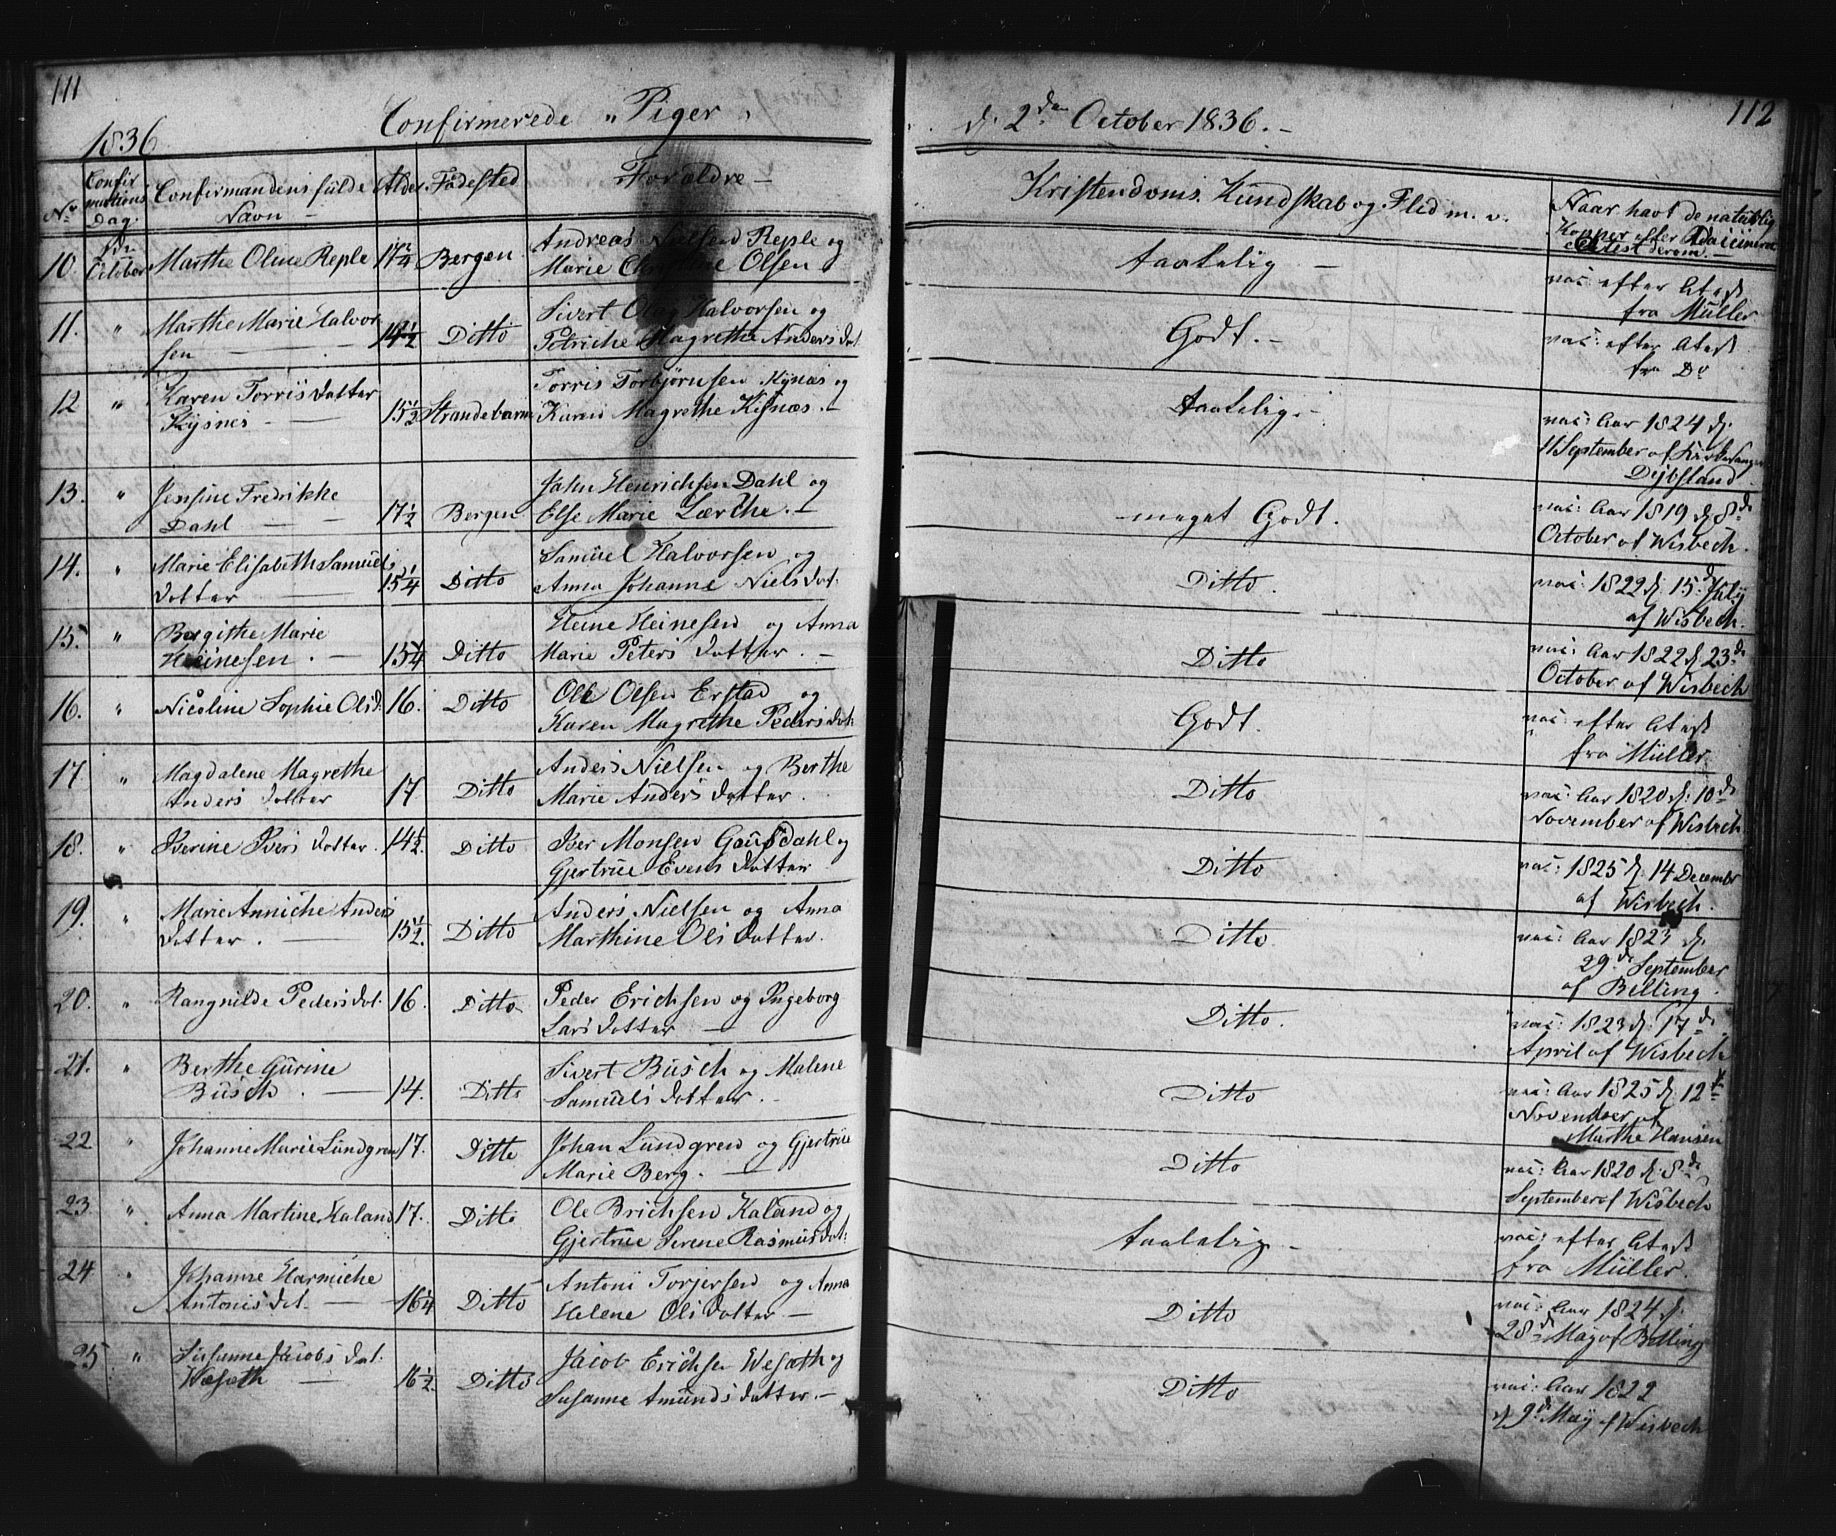 111
1836
Confirmerede „Piger„
d. 2den October 1836. –
112
No
Confirmations Dag.
Confirmandens fulde Navn –
Alder
Födested
Forældre –
Kristendoms. Kundskab og Flid m. v.
Naar havt de naturlig
Kopper eller Vaccineret
Attest derom. –
10. October Marthe Oline Reple Bergen Andreas Nielsen Reple og
Marie Christine Olsen
Taalelig –
vac: efter Atest
fra Müller.
11. „ Marthe Marie Halvor
sen 14½ Ditto Sivert Olay Halvorsen og
Petriche Magrethe Andersdot.
Godt. –
vac: efter Atest
fra Do
12 „ Karen Torrisdatter
Kysnes 15½ Strandebarm Torris Torbjörnsen Kysnæs og
Karen Magrethe Kysnæs. –
Taalelig. –
vac: Aar 1824 d.
11 September af Kirkesanger
Dybsland
13. „ Jensine Fredrikke
Dahl 17½ Bergen Jahn Henrichsen Dahl og
Else Marie Lærche. –
meget Godt.
vac: Aar 1819 d. 8de
October af Wisbech.
14. „ Marie Elisabeth Samuels
dotter 15¼ Ditto Samuel Halvorsen og
Anna Johanne Nielsdot:
Ditto.
vac: 1822 d. 15.d July
af Wisbech.
15. „ Bergithe Marie
Heinesen. – 15¼ Ditto Heine Heinesen og Anna
Marie Peters dotter. –
Ditto
vac: Aar 1822 d. 23de
October af Wisbech
16. „ Nicoline Sophie Olsd: 16. Ditto Ole Olsen Erstad og
Karen Magrethe Pedersdot:
Godt.
vac: efter Atest
fra Müller.
17. „ Magdalene Magrethe
Anders dotter 17 Ditto Anders Nielsen og Berthe
Marie Anders dotter.
Ditto
vac: Aar 1820 d: 10de
November af Wisbech.
18. „ Iverine Ivers dotter. 14½. Ditto Iver Monsen Gausdahl og
Gjertrue Evens dotter.
Ditto
vac: 1825 d. 14 December
af Wisbech.
19. „ Marie Anniche Anders
dotter. – 15½. Ditto Anders Nielsen og Anna
Marthine Olsdotter.
Ditto
vac: Aar 1823 d.
29.de September
af Belling.
20. „ Rangnilde Pedersdot. 16. Ditto Peder Erichsen og Ingeborg
Larsdotter –
Ditto.
vac: 1823 d: 17de
April af Wisbech
21. „ Berthe Gurine
Busch. – 14. Ditto Sivert Busch og Malene
Samuels dotter. –
Ditto
vac: Aar 1825 d. 12te
November af
Marthe Hansen
22 „ Johanne Marie Lundgren 17. Ditto Johan Lundgren og Gjertrue
Marie Berg. –
Ditto
vac: Aar 1820 d. 8de
September af Wisbech
23 „ Anna Martine Kaland 17. Ditto Ole Erichsen Kaland og
Gjertrue Serene Rasmusdot:
Taalelig –
vac: efter Atest
fra Müller.
24 „ Johanne Harmiche
Antonisdot. – 16¼ Ditto Antoni Torjersen og Anna
Helene Olsdotter –
Ditto
vac: Aar 1824 d.
28de May af Belling
25 „ Susanne Jacobs dot.
Wesæth – 16½ Ditto Jacob Erichsen Wesæth og
Susanne Amunds dotter –
Ditto
vac: Aar 1822
d. 9de May af Wisbech